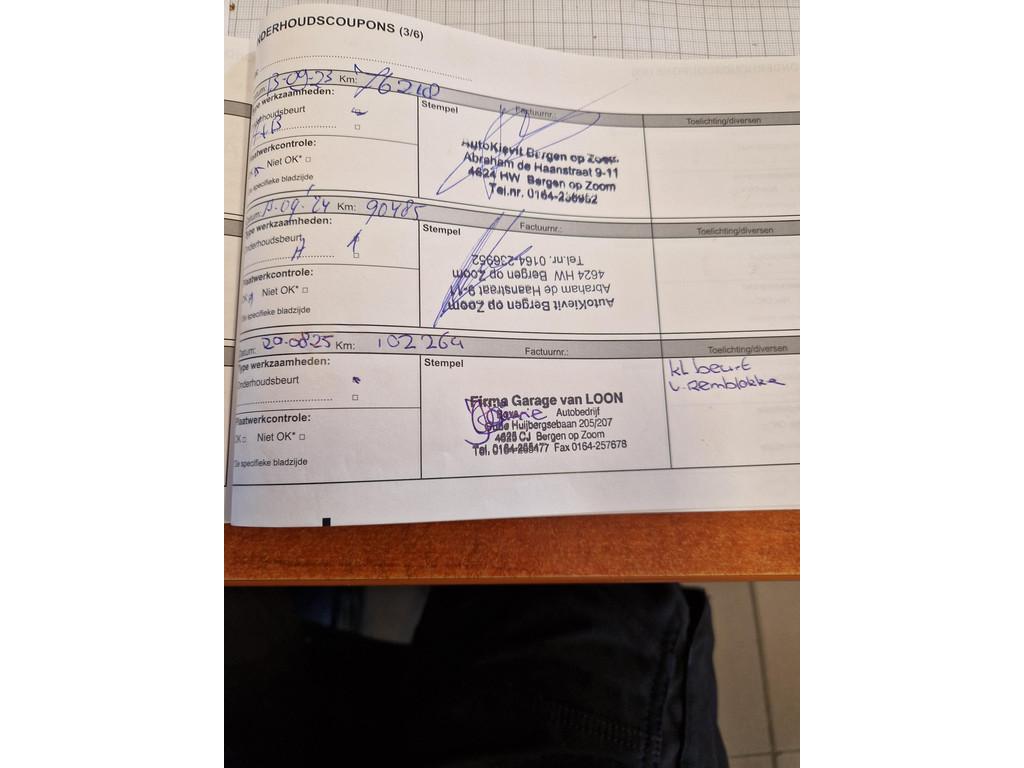 NDERHOUDSCOUPONS (3/6)
Datum: 13-09-23 Km: 76240
Type werkzaamheden:
Onderhoudsbeurt
Plaatwerkcontrole:
OK Niet OK*
Zie specifieke bladzijde
Stempel
Factuurnr.:
Toelichting/diversen
AutoKievit Bergen op Zoom
Abraham de Haanstraat 9-11
4624 HW Bergen op Zoom
Tel.nr. 0164-236952
Datum: -09-'24 Km: 90485
Type werkzaamheden:
Onderhoudsbeurt
Plaatwerkcontrole:
OK Niet OK*
Zie specifieke bladzijde
Stempel
Factuurnr.:
Toelichting/diversen
AutoKievit Bergen op Zoom
Abraham de Haanstraat 9-11
4624 HW Bergen op Zoom
Tel.nr. 0164-236952
Datum: 20-08-25 Km: 102264
Type werkzaamheden:
Onderhoudsbeurt
Plaatwerkcontrole:
OK Niet OK*
Zie specifieke bladzijde
Stempel
Factuurnr.:
Toelichting/diversen
Firma Garage van LOON
Bovag Autobedrijf
Oude Huijbergsebaan 205/207
4625 CJ Bergen op Zoom
Tel. 0164-255477 Fax 0164-257678
kl beurt
v. Remblokke